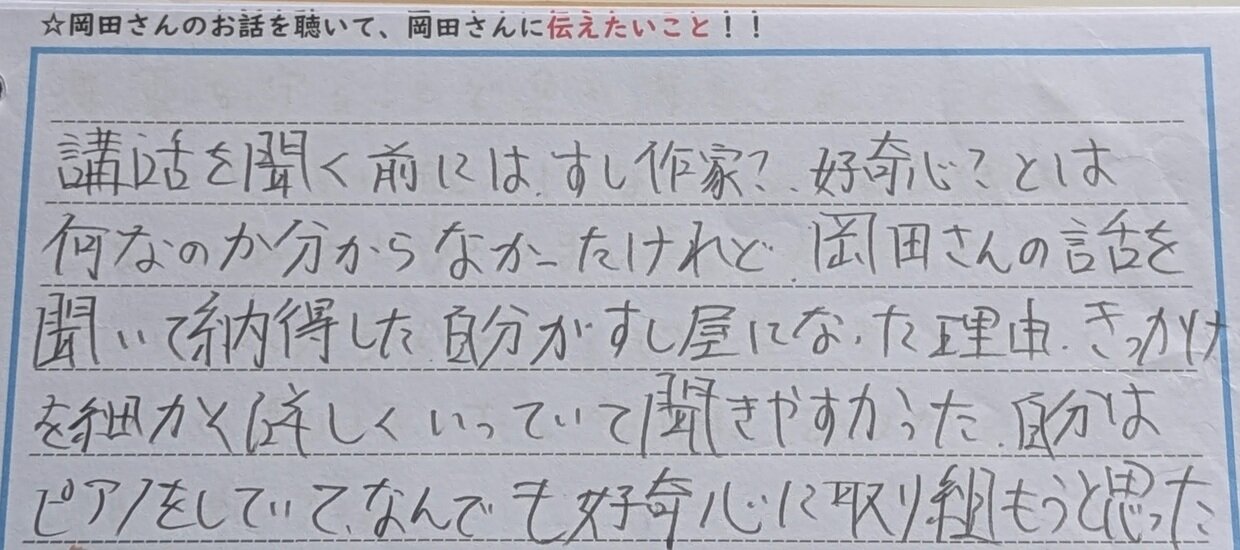 ☆岡田さんのお話を聴いて、岡田さんに伝えたいこと！！
講話を聞く前には、すし作家？、好奇心？とは
何なのか分からなかったけれど、岡田さんの話を
聞いて納得した。自分がすし屋になった理由、きっかけ
を細かく詳しくいっていて聞きやすかった。自分は
ピアノをしていて、なんでも好奇心に取り組もうと思った